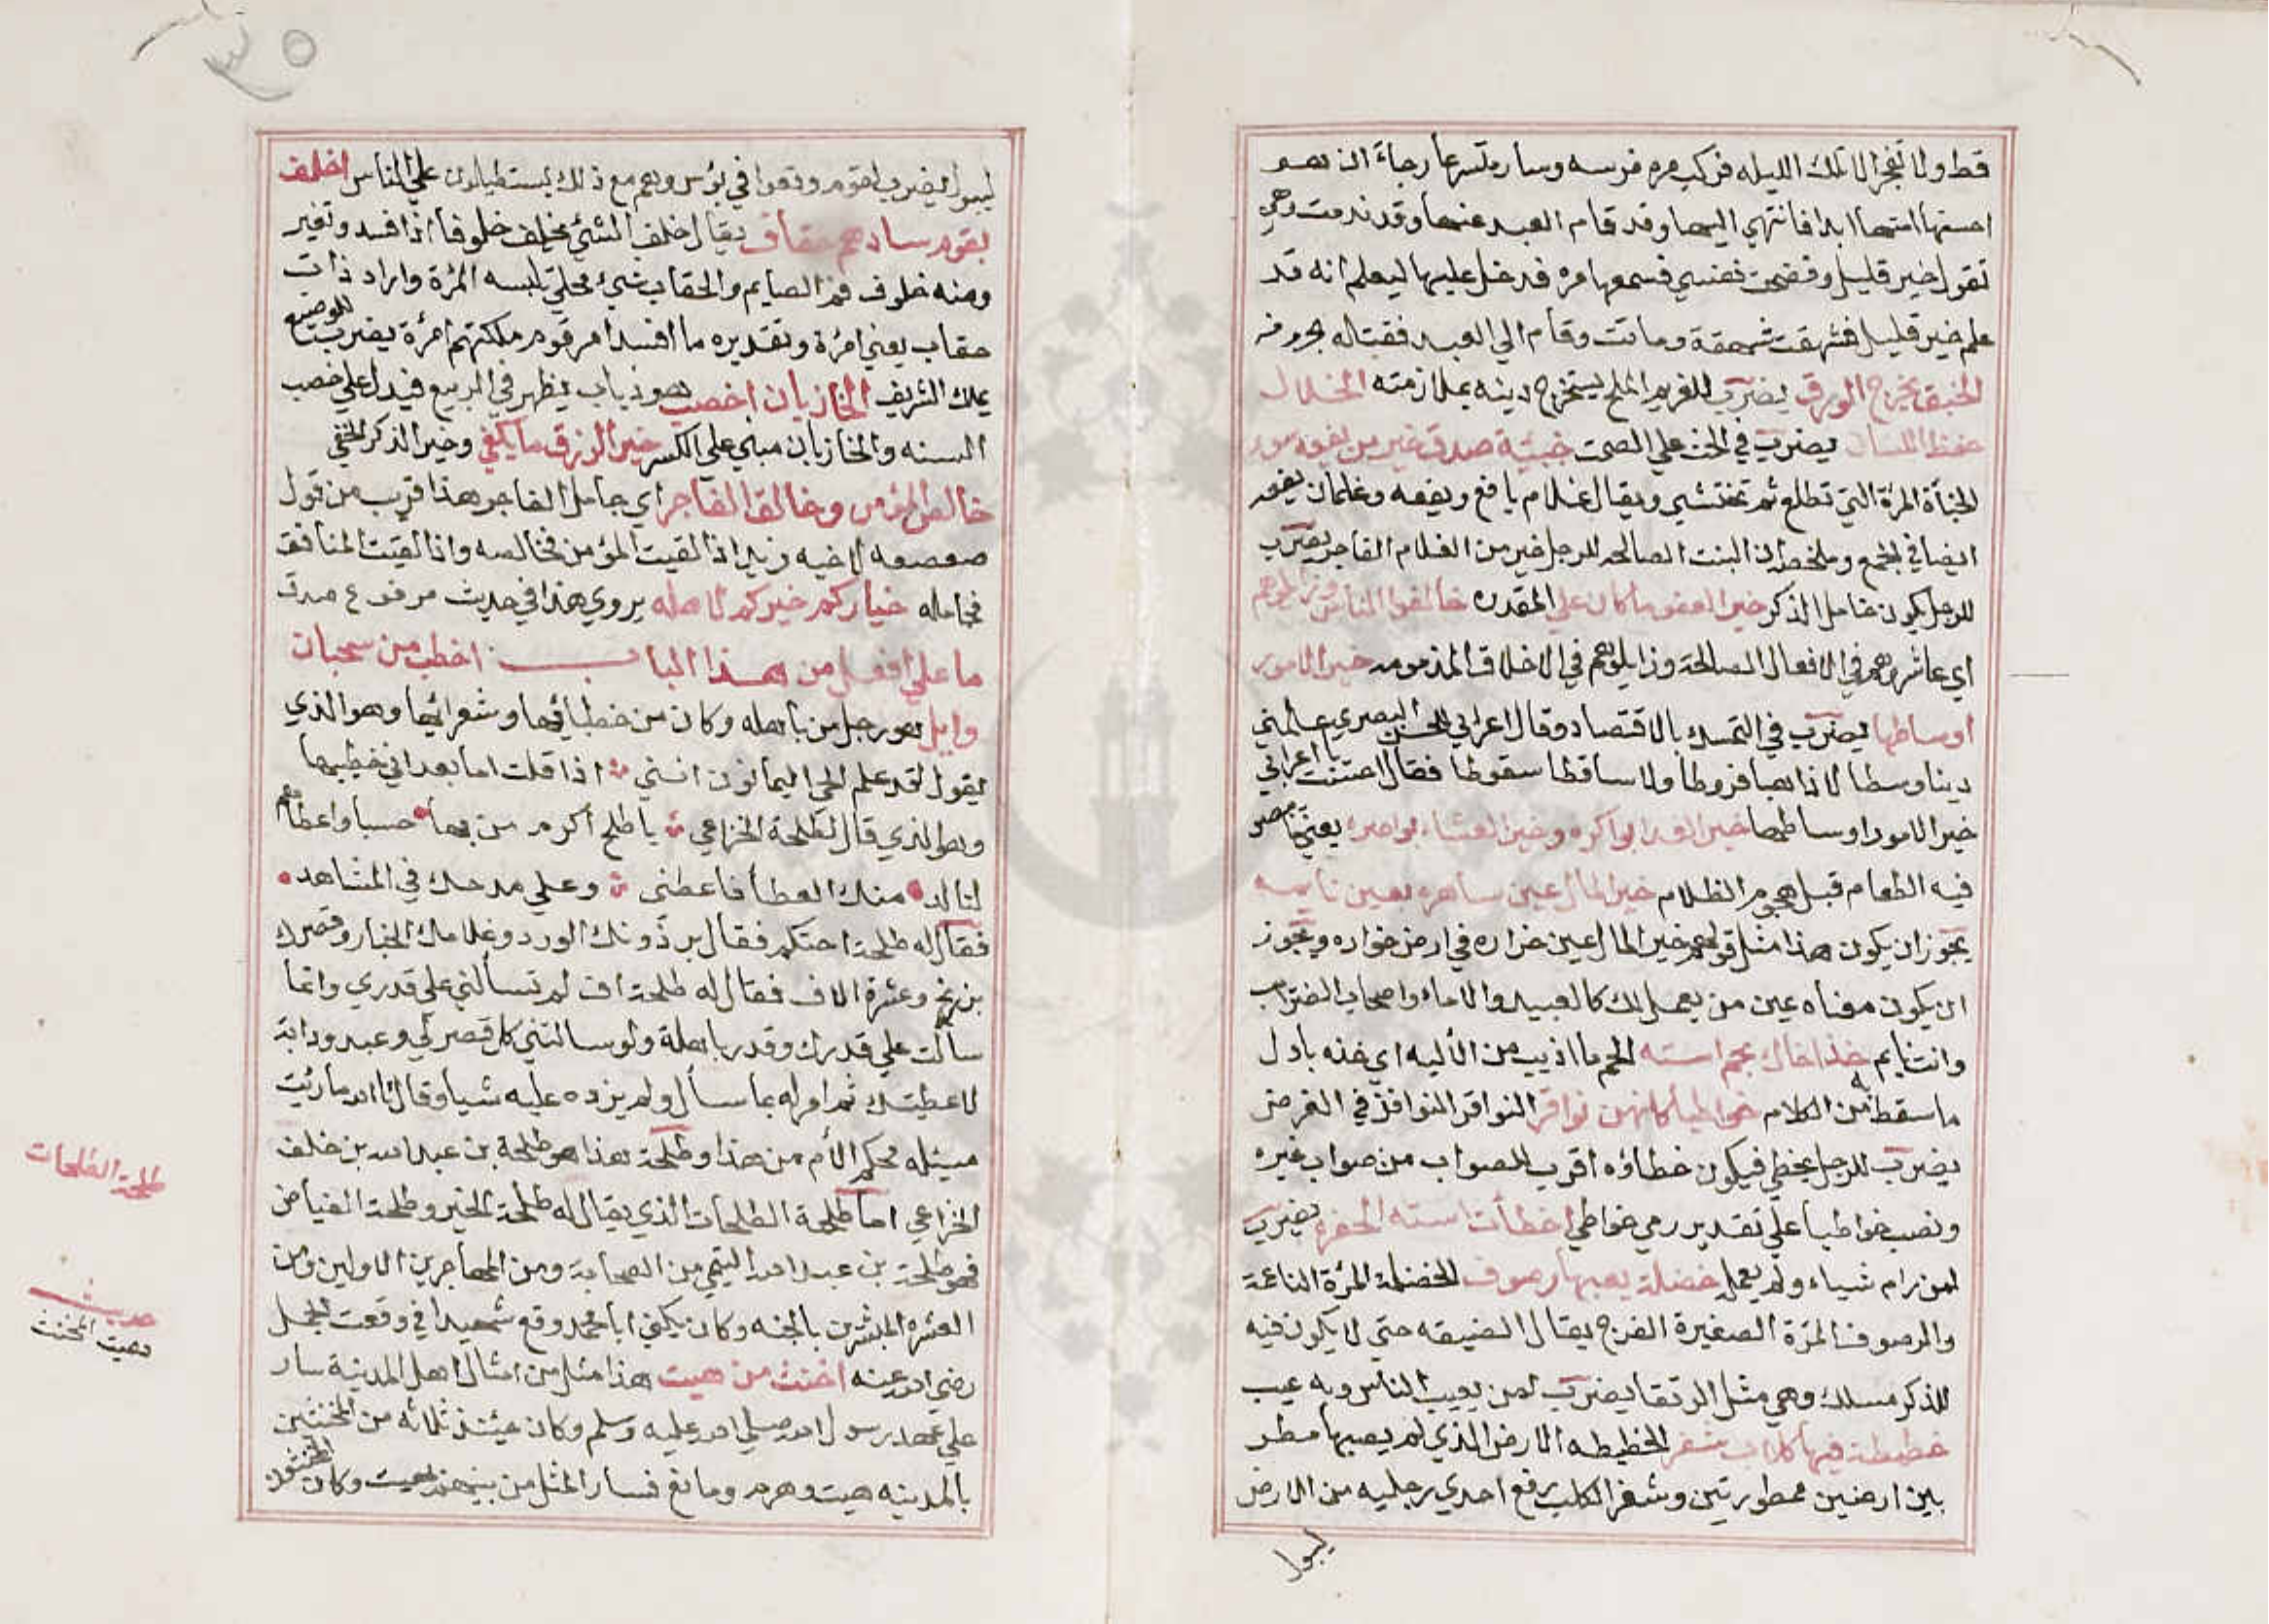 قط ولا تفجر الا تلك الليله فركب مره فرسه وسار مسرعا رجاء ان
احسنها ابدا فانتهي اليهما وقد قام العبد عنها وقد ندمت وهي
تقول خير قليل وفضحت نفسي فسمعها مره فدخل عليها ليعلم انه قد
علم خير قليل فشهقت شهقة وماتت وقام الي العبد فقتله
الخنق يخرج الورق يضرب للغريم الملح ليستخرج دينه بملازمته
حفظ اللسان يضرب في الحث علي الصمت خبئة صدق خير من يفعة سوء
الخبأة المرة التي تطلع ثم تختبئ ويقال غلام يافع ويفعه وغلمان يفعه
ايضا في الجمع وملخصه ان البنت الصالحه للرجل خير من الغلام الفاجر يضرب
للرجل يكون خامل الذكر خير العفو ما كان علي المقدره خالقوا الناس وزايلوهم
اي عاشروهم في الافعال الصالحة وزايلوهم في الاخلاق المذمومه خير الامور
اوساطها يضرب في التمسك بالاقتصاد وقال اعرابي للحسن البصري علمني
دينا وسطا لا ذاهبا فروطا ولا ساقطا سقوطا فقال احسنت يا اعرابي
خير الامور اوساطها خير الغدا بواكره وخير العشا بواصره يعني ما يبصر
فيه الطعام قبل هجوم الظلام خير المال عين ساهره لعين نايمه
يجوز ان يكون هذا مثل قولهم خير المال عين خراره في ارض خواره ويجوز
ان يكون معناه عين من يعمل لك كالعبيد والاماء واصحاب الضرايب
وانت نايم خذ اخاك بحم استه الحم ما اذيب من الألية اي خذه باول
ما سقط به من الكلام خواطيا كانهن نواقر النواقر النوافذ في الغرض
يضرب للرجل يخطي فيكون خطاؤه اقرب للصواب من صواب غيره
ونصب خواطيا علي تقدير رمي خواطي اخطأت استه الحفره يضرب
لمن رام شياء ولم يعمل خضلة يعيبها رصوف الخضلة المرة الناعمة
والرصوف المرة الصغيرة الفرج يقال الضيقه حتي لا يكون فيه
للذكر مسلك وهي مثل الرتقا يضرب لمن يعيب الناس وبه عيب
خطيطة فيها كلاب شغر الخطيطه الارض الذي لم يصبها مطر
بين ارضين ممطورتين وشغر الكلب رفع احدي رجليه من الارض
ليبول
ليبول يضرب لقوم وقعوا في بؤس وهم مع ذلك يستطيلون علي الناس اخلف
بقوم سادهم حقاب يقال خلف الشئ يخلف خلوفا اذا فسد وتغير
ومنه خلوف فم الصايم والحقاب شئ محلي تلبسه المرة واراد ذات
حقاب يعني امرة وتقديره ما افسد امر قوم ملكتهم امرة يضرب للوضيع
يملك الشريف الخازبان اخصب هو ذباب يظهر في الربيع فيدل علي خصب
السنه والخازبان مبني علي الكسر خير الرزق ما يكفي وخير الذكر الخفي
خالص المؤمن وخالق الفاجر اي جامل الفاجر وهذا قريب من قول
صعصعه لاخيه زيد اذا لقيت المؤمن فخالصه واذا لقيت المنافق
فخامله خياركم خيركم لاهله يروي هذا في حديث مرفوع صدق
ما علي افعل من هذا الباب اخطب من سحبان
وايل هو رجل من باهله وكان من خطبائها وشعرائها وهو الذي
يقول لقد علم الحي اليمانون انني اذا قلت اما بعد اني خطيبها
وهو الذي قال لطلحة الخزاعي يا طلح اكرم من بها حسبا واعطاهم
لتالد منك العطا فاعطني وعلي مدحك في المشاهد
فقال له طلحة احتكم فقال برذونك الورد وغلامك الخباز وقصرك
بزرنج وعشرة الاف فقال له طلحة اف لم تسألني علي قدري وانما
سألت علي قدرك وقدر باهلة ولو سالتني كل قصر لي وعبد ودابة
لاعطيتك ثم امر له بما سأل ولم يزده عليه شيا وقال تالله ما رئيت
مسئله محكم الأم من هذا وطلحة هذا هو طلحة بن عبد الله بن خلف
الخزاعي اما طلحة الطلحات الذي يقال له طلحة الخير وطلحة الفياض
فهو طلحة بن عبد الله التيمي من الصحابة ومن المهاجرين الاولين ومن
العشره المبشرين بالجنه وكان يكني ابا محمد وقع شهيدا في وقعت الجمل
رضي الله عنه اخنث من هيت هذا مثل من امثال اهل المدينة سار
علي عهد رسول الله صلي الله عليه وسلم وكان حينئذ ثلاثه من المخنثين
بالمدينه هيت وهرم وماتع فسار المثل من بينهم بهيت وكان المخنثون
طلحة الطلحات
حديث
هيت المخنث